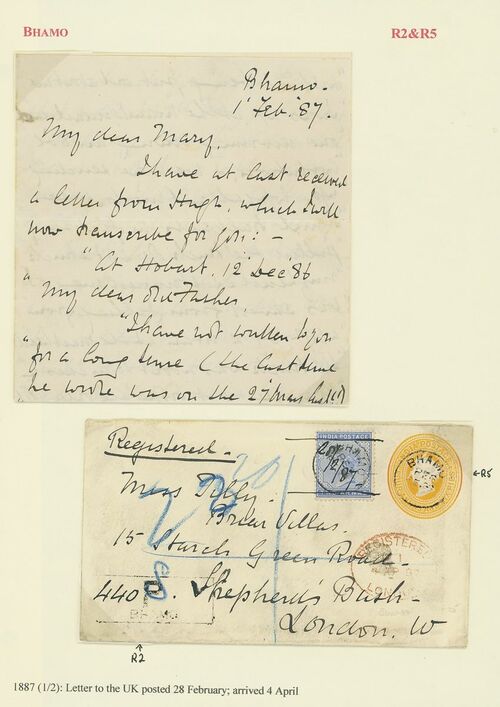 BHAMO
R2&R5
Bhamo.
1 Feb. '87.
My dear Mary,
I have at last received
a letter from Hugh, which I will
now transcribe for you: –
"At Hobart, 12 Dec '86
"My dear old Father,
"I have not written to you
"for a long time (the last time
he wrote was on the 27
Registered.
INDIA POSTAGE
BHAMO
←R5
Miss Tilly.
Briar Villas.
15 Starch Green Road
REGISTERED
LONDON
440
Shepherd's Bush
BHAMO
London. W
R2
1887 (1/2): Letter to the UK posted 28 February; arrived 4 April